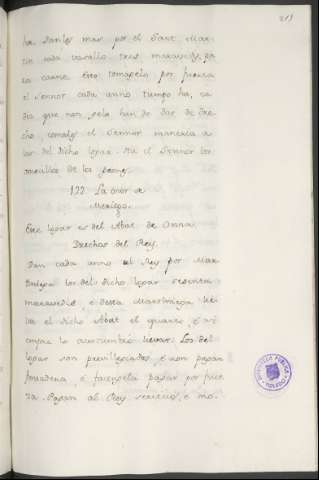 213
ha. Danles mas por el Sant Mar-
tin cada vasallo tres maravedis, pa
ra carne. Esto tomagelo por fuerza
el Sennor cada anno tiempo ha, ca
dia que non gelo han de dar de dre-
cho. comolo el Sennor manera a
los del dicho logar. Ha el Sennor los
omecillos de los
122. La onor de
Meriego.
Este logar es del Abat de Onna.
Drechos del Rey.
Dan cada anno al Rey por Mar
tiniega los del dicho logar sesenta
maravedis, e desta Martiniega lie-
va el dicho Abat el quarto, e asi
cunple lo acostumbra levar. Los del
logar son previllegiados, e non pagan
fonsadera, e facengela pagar por fuer
za. Pagan al Rey servicios, e mo-
BIBLIOTECA PUBLICA
TOLEDO